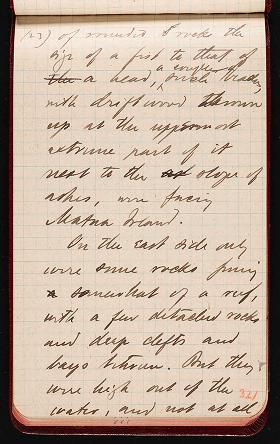 (23) of rounded rocks the
size of a fist to that of
the a head, a couple of
such beaches,
with driftwood thrown
up at the uppermost
extreme part of it
next to the slope of
ashes, were facing
Matua Island.
On the East side only
were some rocks
a somewhat of a reef,
with a few detached rocks
and deep clefts and
bays between. But they
were high out of the
water, and not at all
321